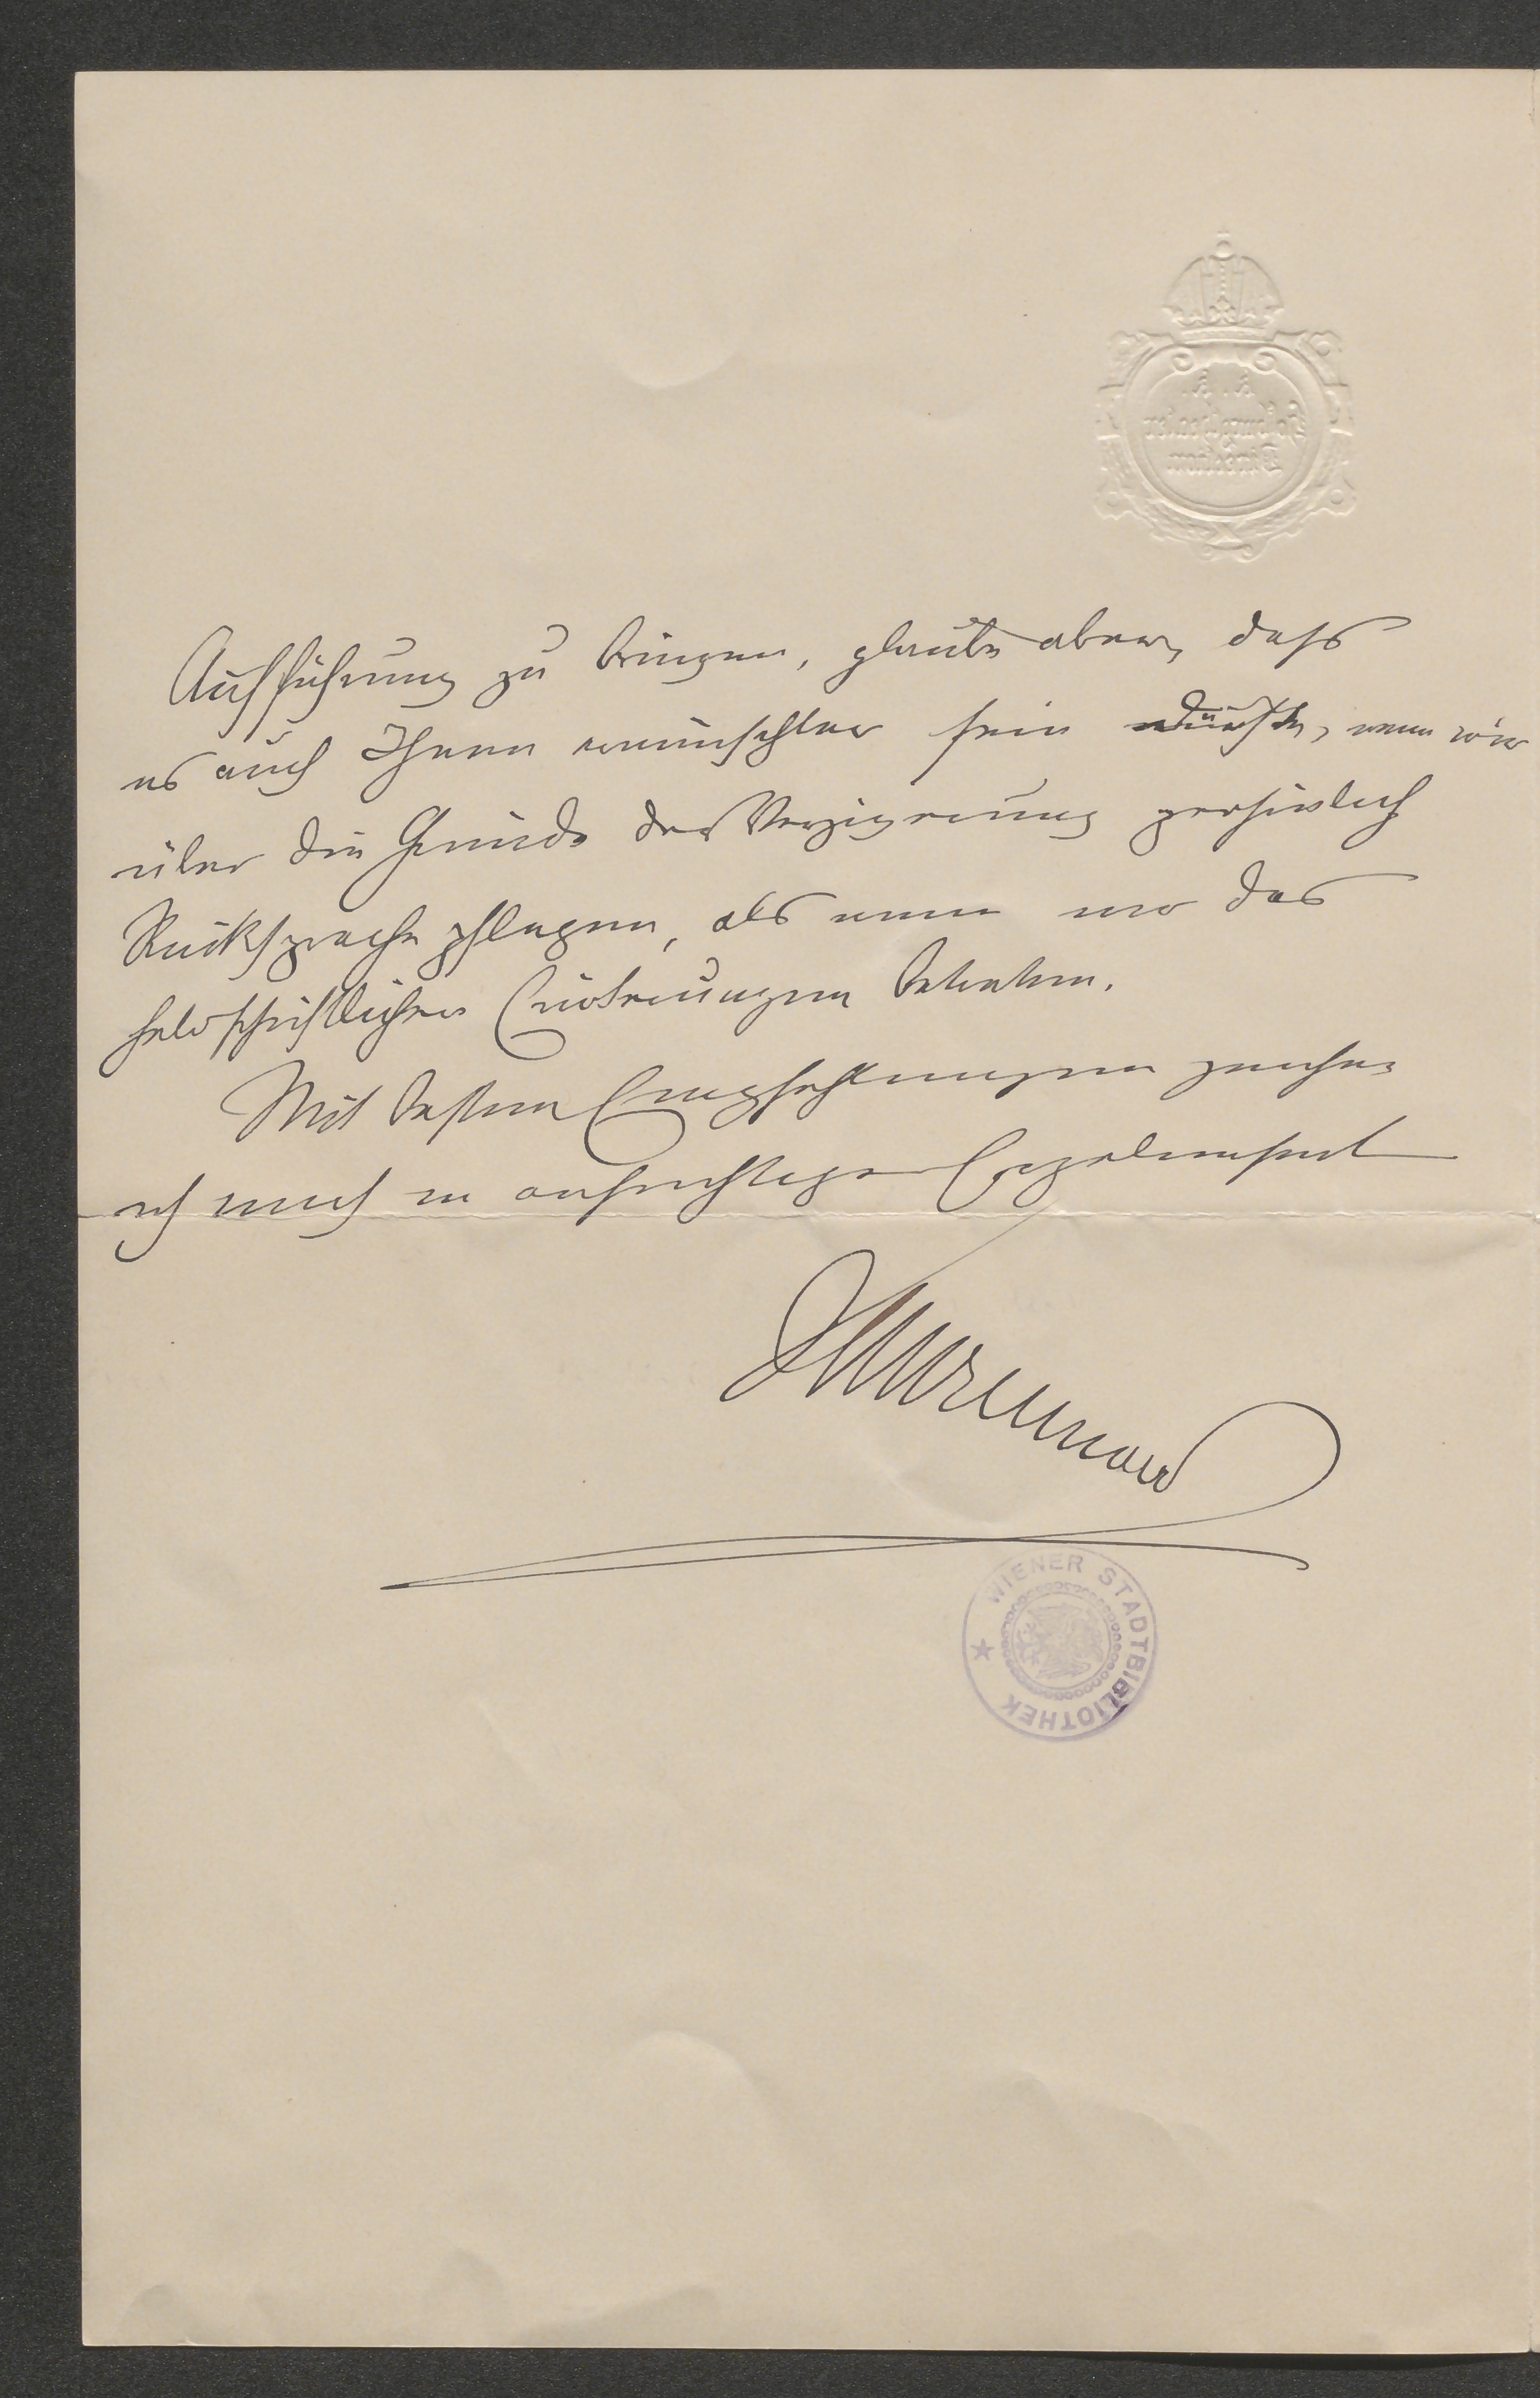 K. K.
Hofburgtheater
Direction
Aufführung zu bringen, glaube aber, daß
es auch Ihnen erwünschter sein dürfte, wenn wir
über die Gründe der Verzögerung persönlich
Rücksprache pflegen, als wenn wir das
Mit besten Empfehlungen zeichne
ich mich in aufrichtiger Ergebenheit
WIENER STADTBIBLIOTHEK